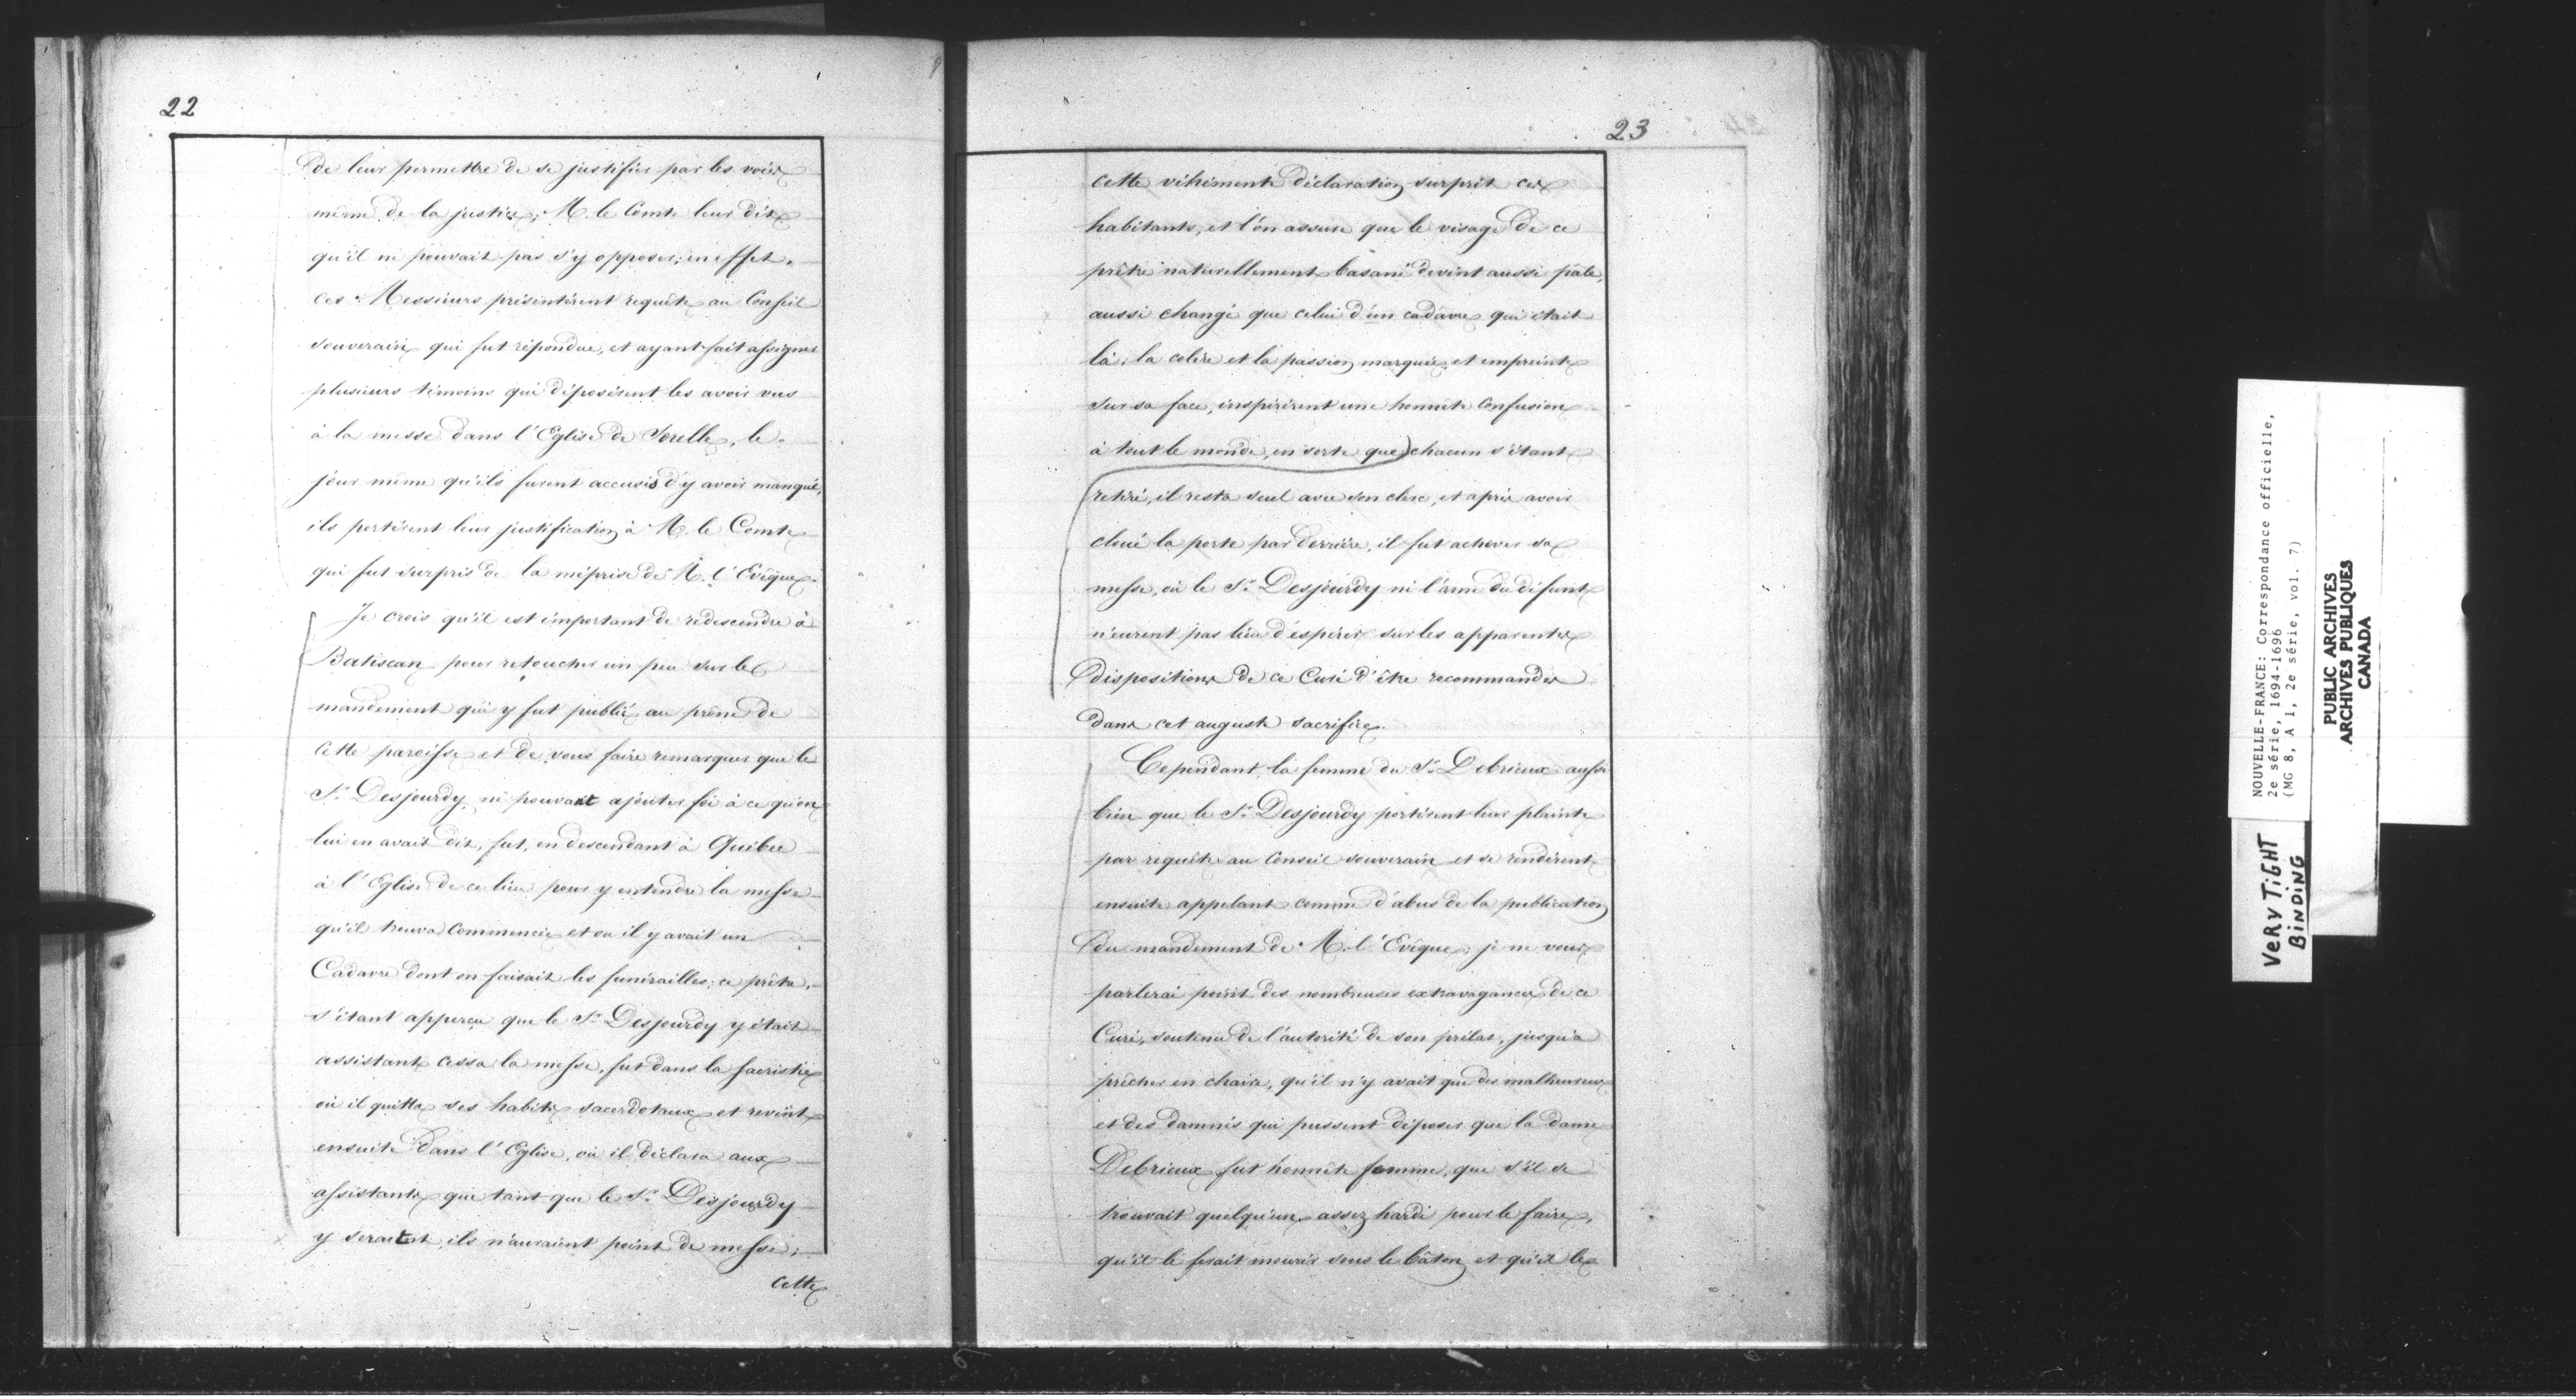 22
de leur permettre de se justifier par les voies
même de la justice; M. le Comte leur dit
qu'il ne pouvait pas s'y opposer; en effet.
ces Messieurs présentèrent requête au Conseil
souverain qui fut répondue, et ayant fait assigner
plusieurs témoins qui déposèrent les avoir vus
à la messe dans l'Eglise de Sorelle, le
jour même qu'ils furent accusés d'y avoir manqué,
ils portèrent leur justification à M. le Comte
qui fut surpris de la méprise de M. l'Evêque.
Je crois qu'il est important de redescendre à
Batiscan pour retoucher un peu sur le
mandement qui y fut publié au prône de
cette paroisse et de vous faire remarquer que le
Sr. Desjourdy ne pouvant ajouter foi à ce qu'on
lui en avait dit, fut, en descendant à Quebec
à l'Eglise de ce lieu pour y entendre la messe
qu'il trouva commencée et où il y avait un
Cadavre dont on faisait les funérailles; ce prêtre,
s'étant apperçu que le Sr. Desjourdy y était
assistant cessa la messe, fut dans la sacristie
où il quitta ses habits sacerdotaux et revint
ensuite dans l'Eglise, où il déclara aux
assistants que tant que le Sr. Desjourdy
y serait, ils n'auraient point de messe;
cette
23
cette véhémente déclaration surprit ces
habitants, et l'on assure que le visage de ce
prêtre naturellement basané devint aussi pâle,
aussi changé que celui d'un cadavre qui était
là; la colère et la passion marquée et empreinte
sur sa face, inspirèrent une honnête confusion
à tout le monde, en sorte que) chacun s'étant
retiré, il resta seul avec son clerc, et après avoir
cloué la porte par derrière, il fut achever sa
messe, où le Sr. Desjourdy ni l'ame du défunt
n'eurent pas lieu d'espérer sur les apparentes
dispositions de ce Curé d'être recommandés
dans cet auguste sacrifice.
Cependant la femme du Sr. Debrieux aussi
bien que le Sr. Desjourdy portèrent leur plainte
par requête au Conseil souverain et se rendirent
ensuite appelant comme d'abus de la publication
du mandement de M. l'Evêque; je ne vous
parlerai point des nombreuses extravagances de ce
Curé, soutenu de l'autorité de son prélat, jusqu'à
prêcher en chaire, qu'il n'y avait que des malheureux
et des damnés qui pussent déposer que la dame
Debrieux fut honnête femme, que s'il se
trouvait quelqu'un assez hardi pour le faire,
qu'il le ferait mourir sous le bâton et qu'il le
NOUVELLE-FRANCE: Correspondance officielle,
2e série, 1694-1696
(MG 8, A 1, 2e série, vol. 7)
PUBLIC ARCHIVES
ARCHIVES PUBLIQUES
CANADA
VERY TIGHT
BINDING